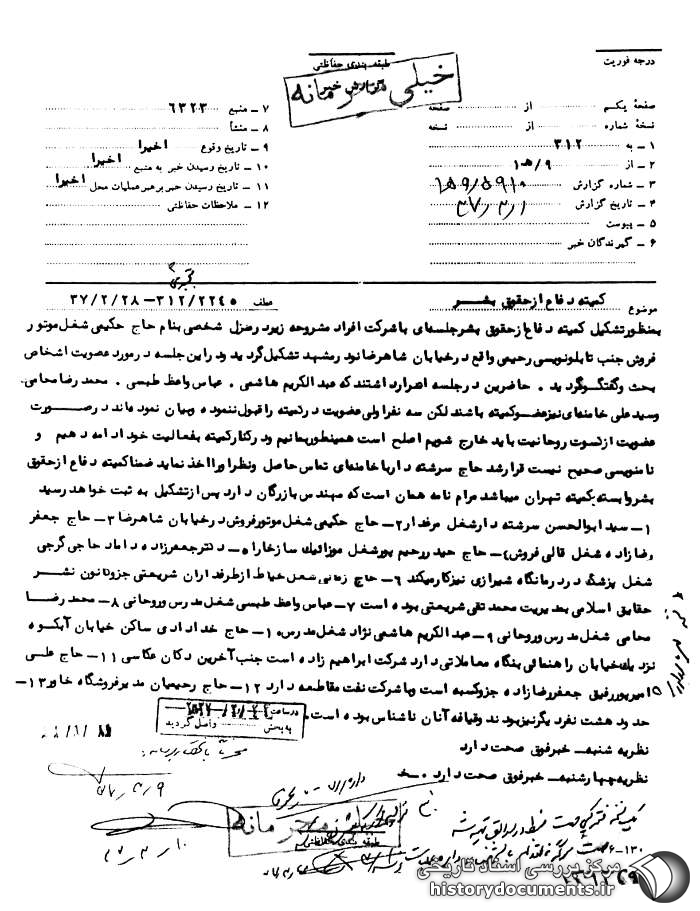 درجه فوریت
طبقه بندی حفاظتی
خیلی محرمانه
گزارش خبر
صفحهٔ یکم از صفحه
نسخهٔ شماره از نسخه
۱ - به ۳۱۲
۲ - از ۹/ه۱
۳ - شماره گزارش
۴ - تاریخ گزارش
۵ - پیوست
۶ - گیرندگان خبر
۷ - منبع ۶۳۲۳
۸ - منشأ
۹ - تاریخ وقوع اخیرا
۱۰ - تاریخ رسیدن خبر به منبع اخیرا
۱۱ - تاریخ رسیدن خبر برهبر عملیات محل اخیرا
۱۲ - ملاحظات حفاظتی
موضوع کمیته دفاع از حقوق بشر عطف ۳۱۲/۲۲۴۵-۳۷/۲/۲۸
بمنظور تشکیل کمیته دفاع از حقوق بشر جلسه‌ای با شرکت افراد مشروحه زیر در منزل شخصی بنام حاج حکیمی شغل موتور
فروش جنب تابلونویسی رحیمی واقع در خیابان شاهرضا نو در مشهد تشکیل گردید و در این جلسه در مورد عضویت اشخاص
بحث و گفتگو گردید . حاضرین در جلسه اصرار داشتند که عبدالکریم هاشمی . عباس واعظ طبسی . محمد رضا محامی.
وسید علی خامنه‌ای نیز عضو کمیته باشند لکن سه نفر اولی عضویت در کمیته را قبول ننموده و بیان نموده‌اند در صورت
عضویت از کسوت روحانیت باید خارج شویم اصلح است همینطور بمانیم و در کنار کمیته بفعالیت خود ادامه دهیم و
نامنویسی صحیح نیست قرار شد حاج سرشته دار با خامنه‌ای تماس حاصل و نظر او را اخذ نماید ضمنا کمیته دفاع از حقوق
بشر وابسته بکمیته تهران میباشد مرام نامه همان است که مهندس بازرگان دارد پس از تشکیل به ثبت خواهد رسید
۱- سید ابوالحسن سرشته دار شغل مرغدار ۲- حاج حکیمی شغل موتور فروش در خیابان شاهرضا ۳- حاج جعفر
رضازاده شغل قالی فروش ۴- حاج حیدر رحیم پور شغل موزائیک ساز خارا ۵- دکتر جعفرزاده داماد حاجی گرجی
شغل پزشک در درمانگاه شیرازی نیز کار میکند ۶- حاج زمانی شغل خیاط از طرفداران شریعتی جزو کانون نشر
حقایق اسلامی بمدیریت محمد تقی شریعتی بوده است ۷- عباس واعظ طبسی شغل مدرس و روحانی ۸- محمد رضا
محامی شغل مدرس و روحانی ۹- عبدالکریم هاشمی نژاد شغل مدرس. ۱۰- حاج خدادادی ساکن خیابان آبکوه
نزدیک خیابان راهنمائی بنگاه معاملاتی دارد شرکت ابراهیم زاده است جنب آخرین دکان عکاسی ۱۱- حاج علی
امیرپور رفیق جعفر رضازاده جزو کسبه است و با شرکت نفت مقاطعه دارد ۱۲- حاج رحیمیان مدیر فروشگاه خاور ۱۳-
حدود هشت نفر دیگر نیز بودند و قیافه آنان ناشناس بوده است.
در ساعت
به بخش واصل گردید
نظریه شنبه- خبر فوق صحت دارد
نظریه چهارشنبه- خبر فوق صحت دارد . خ
خیلی محرمانه
طبقه بندی حفاظتی
مرکز بررسی اسناد تاریخی
historydocuments.ir